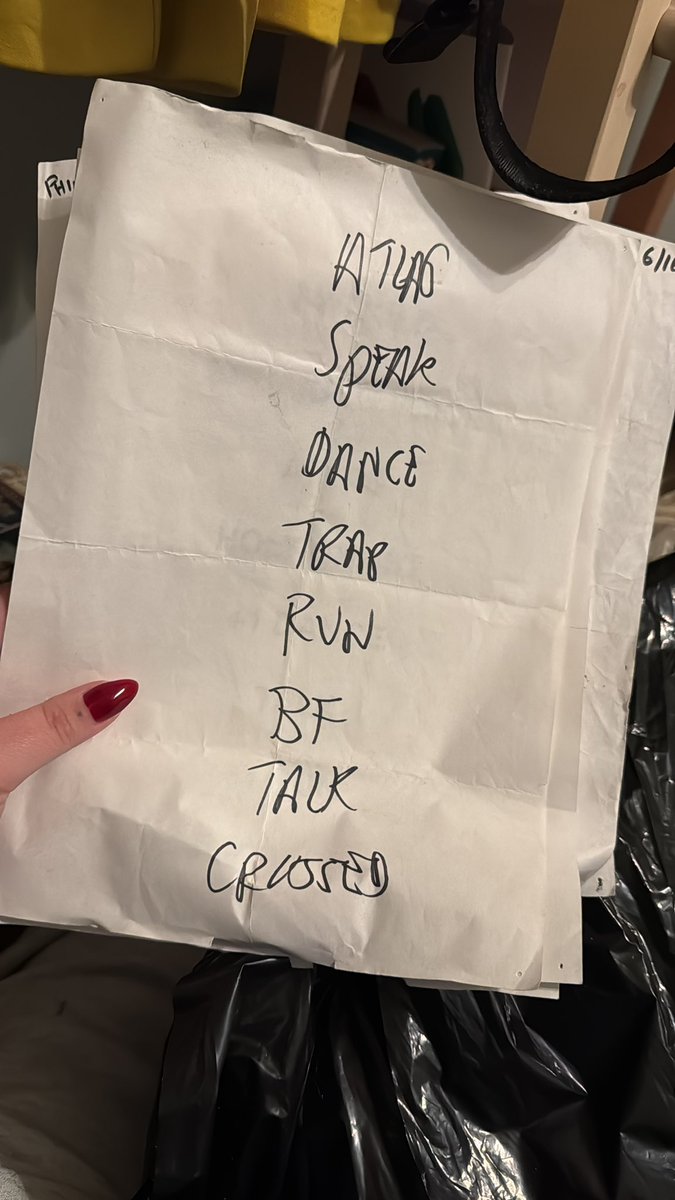 PHI
6/16
ATLAS
SPEAK
DANCE
TRAP
RUN
BF
TALK
CROSSED